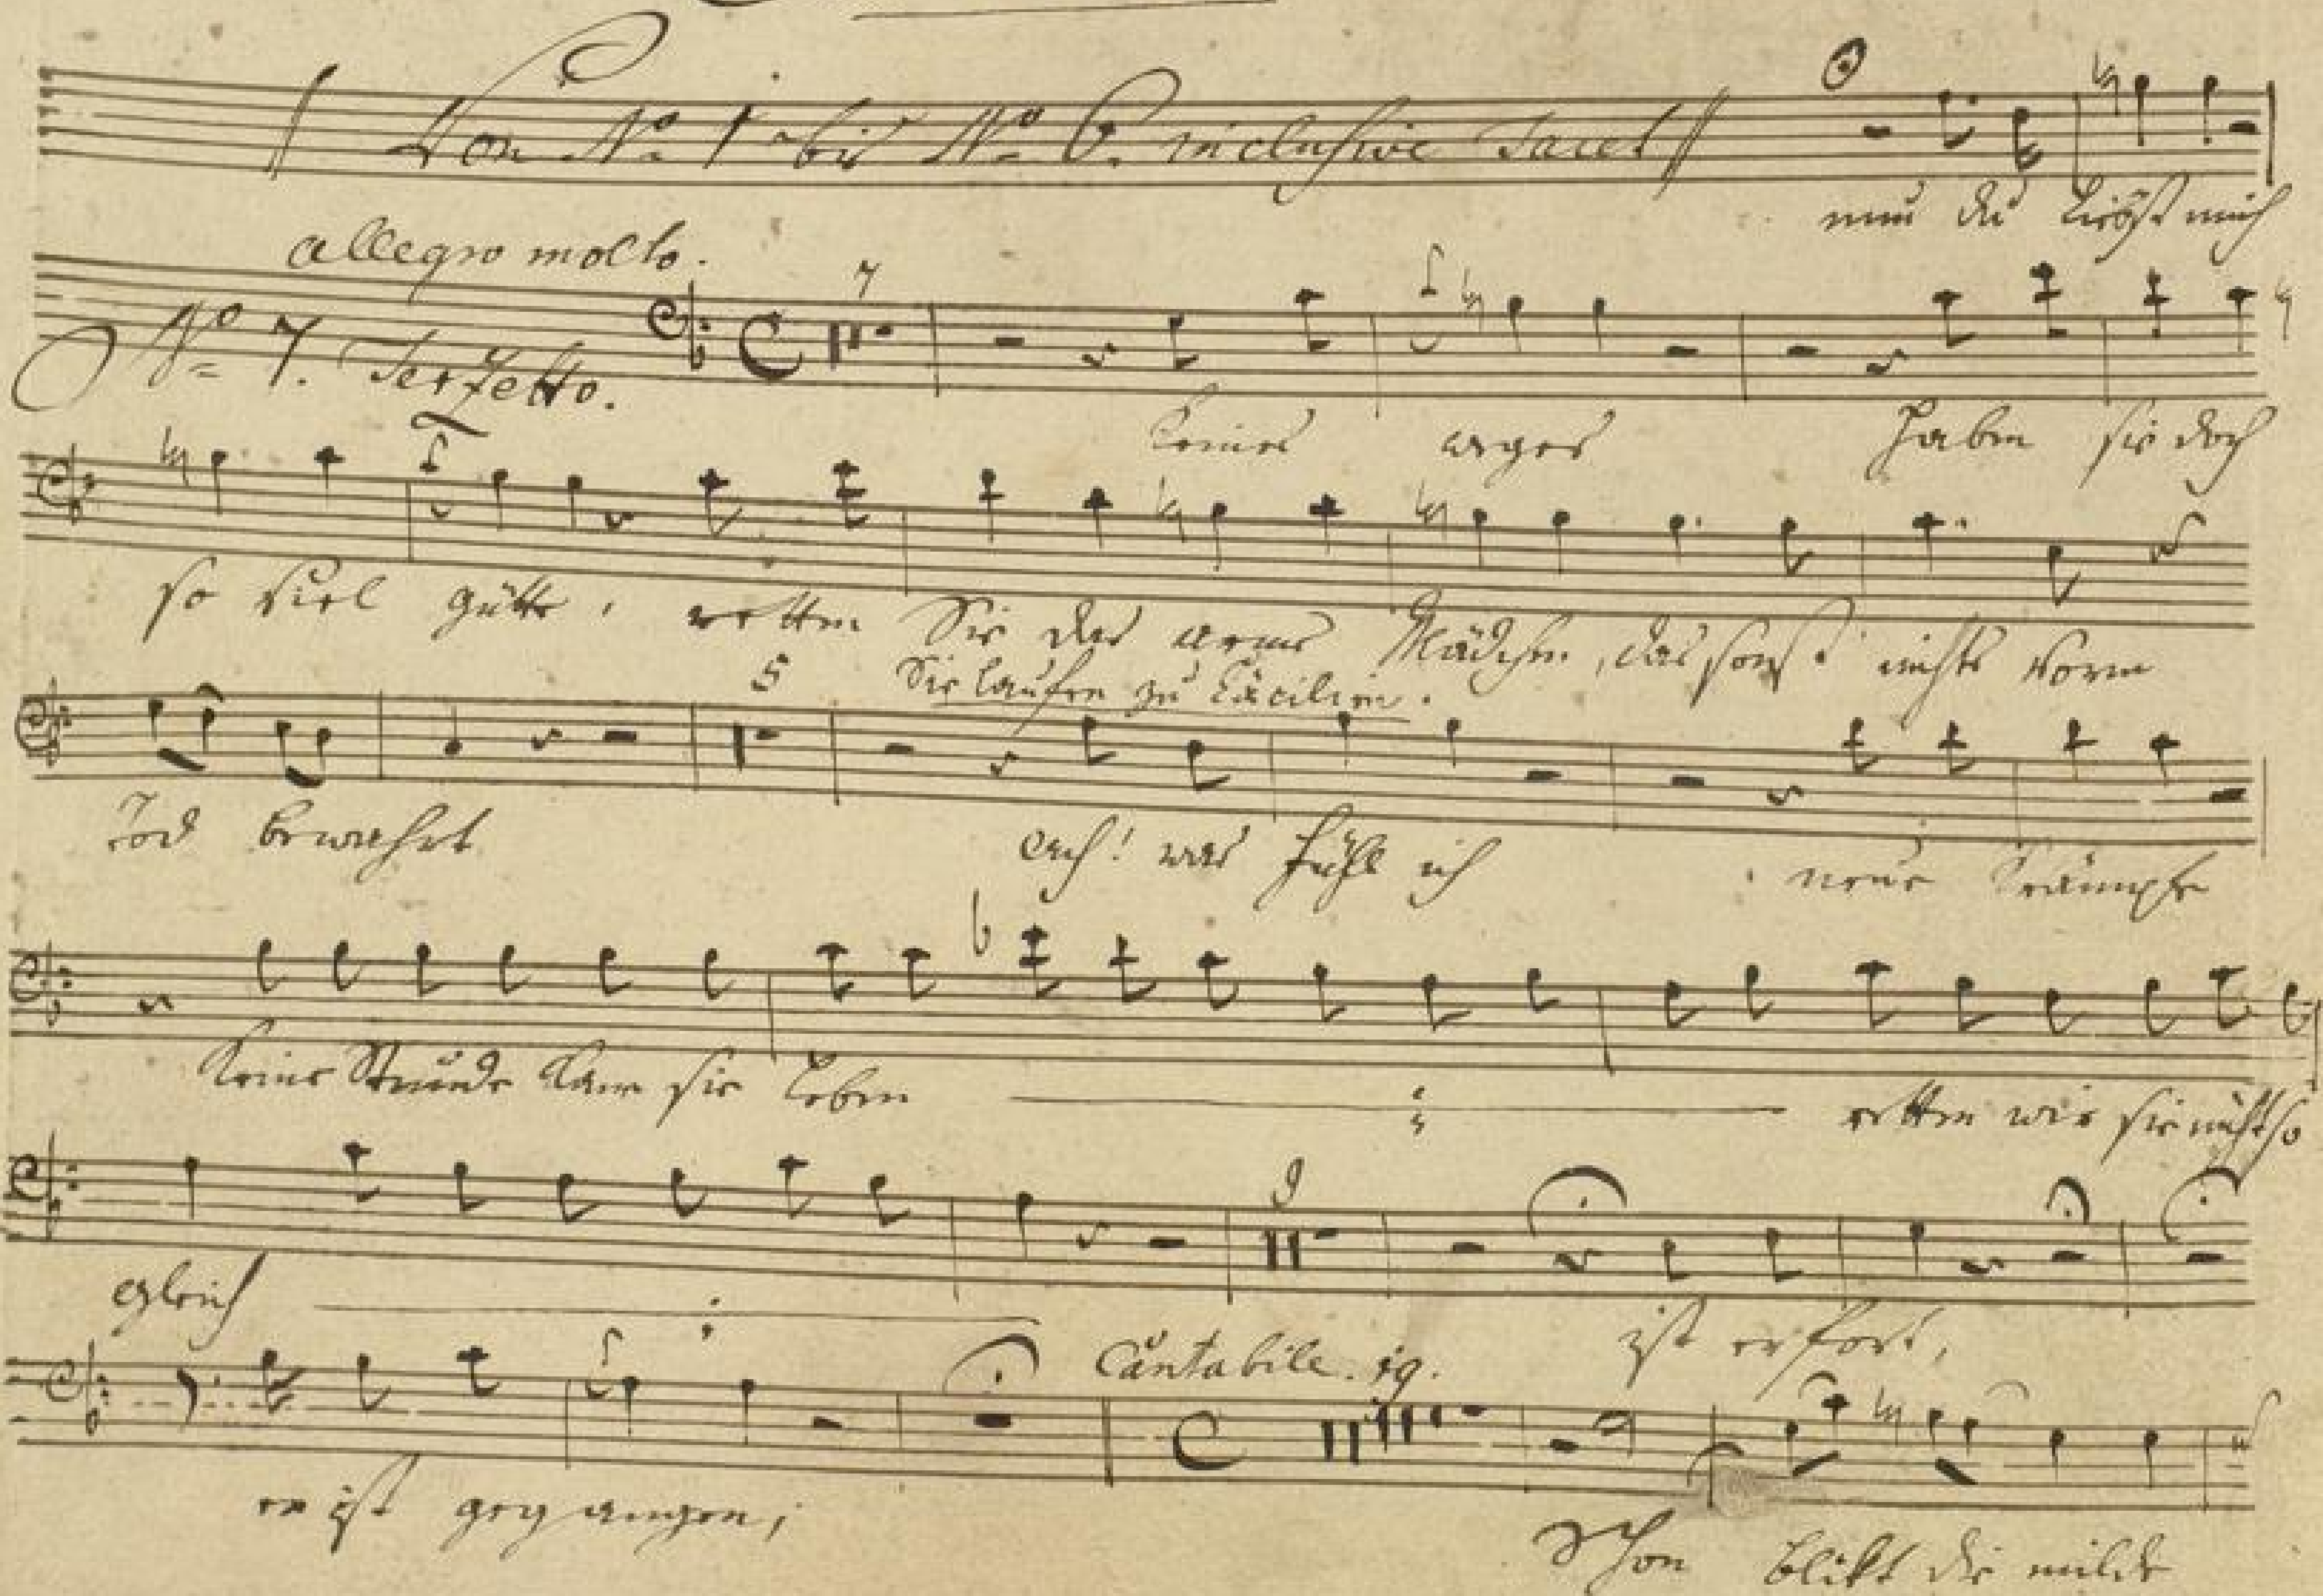 Von No. 1 bis No. 6. inclusive Tacet
nun du liebst mich
allegro molto.
7
No. 7. Terzetto.
Keines arges haben sie doch
so viel gütte, retten Sie das arme Mädchen, das sonst nichts vorm
5 Sie laufen zu Cäcilien.
Tod bewahrt ach! was fühl ich neue Krämpfe
Keine Stunde kann sie leben retten wir sie nicht so
gleich
9
ist er fort,
Cantabile. 19.
er ist gegangen; Schon blikt die milde